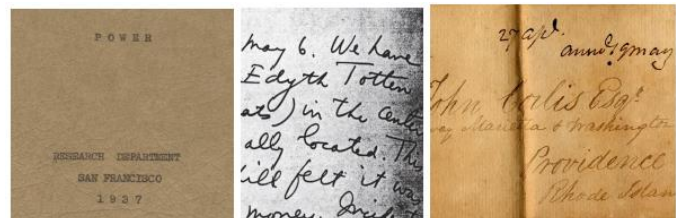 POWER
RESEARCH DEPARTMENT
SAN FRANCISCO
1937
May 6. We have
Edyth Totten
ats) in the center
ally located. This
ill felt it wa
money.
27 apl.
annd. 19 may
John Corlis Esqr.
way Marietta & Washington
Providence
Rhode Islan